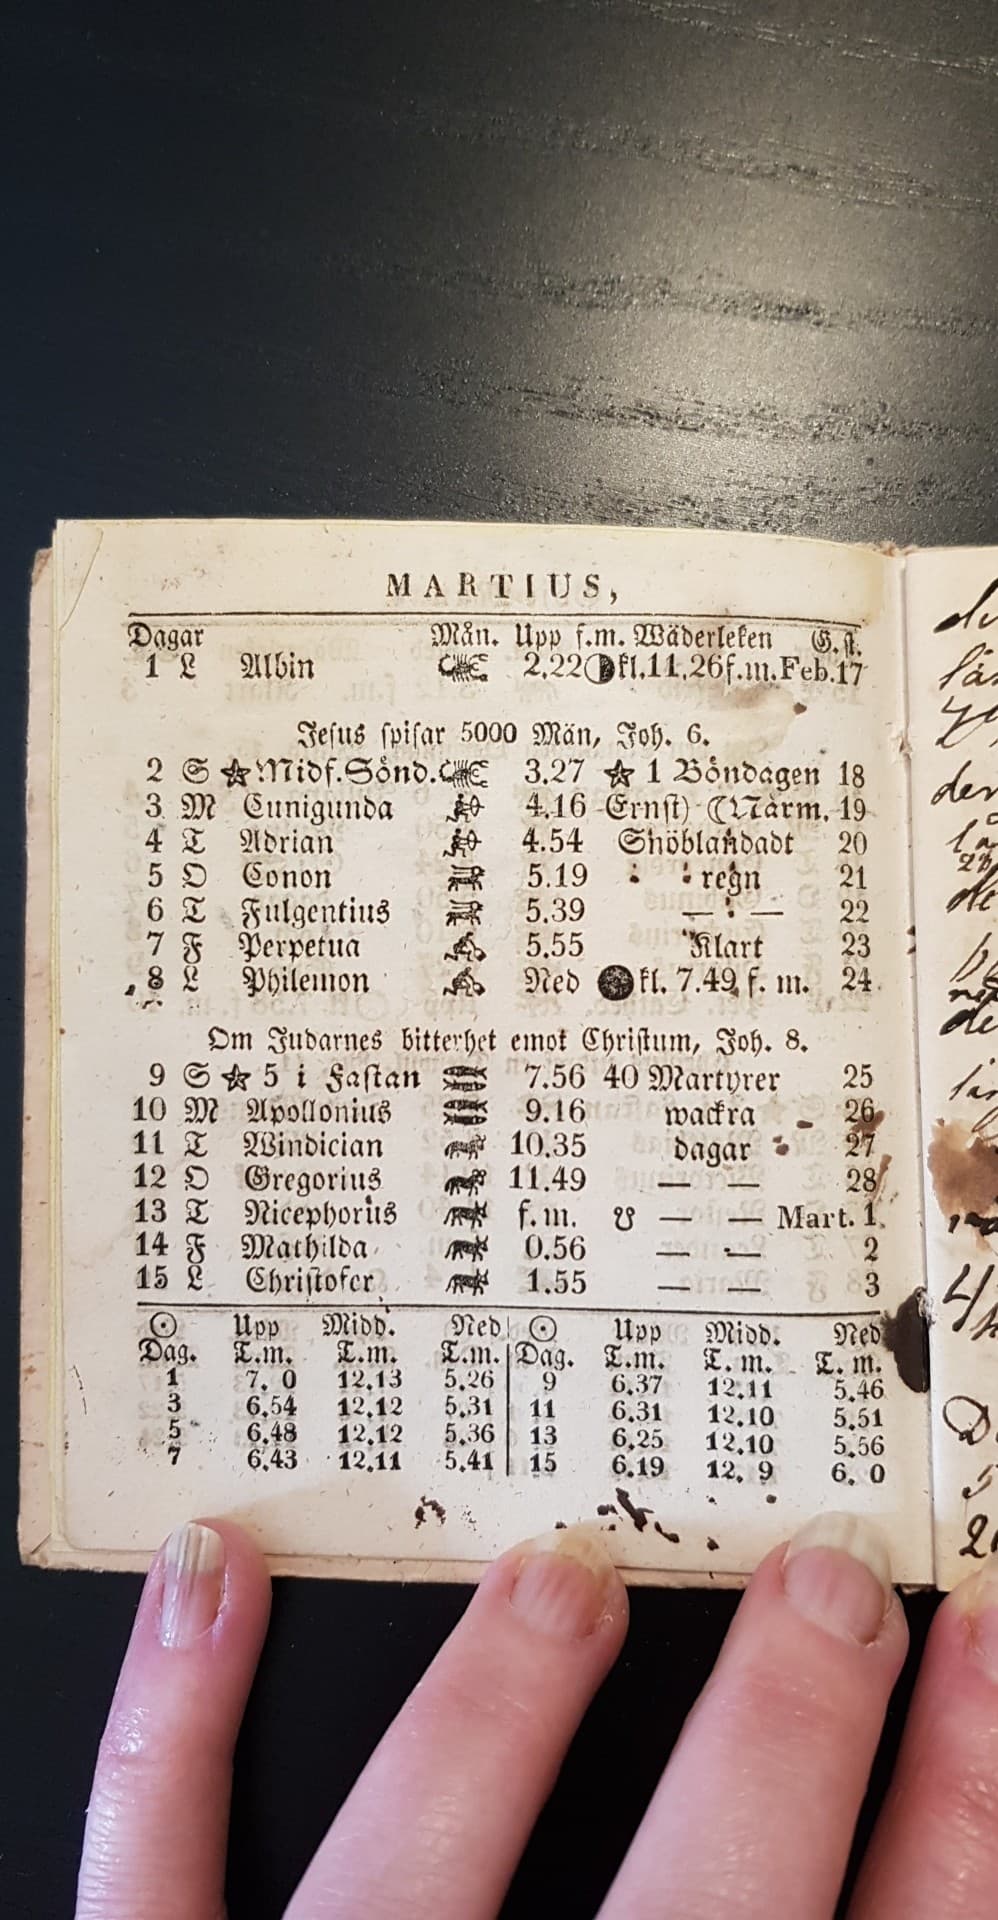 MARTIUS,
Dagar Mån. Upp f.m. Wäderleken G.st.
1 L Albin 2.22 kl.11.26f.m.Feb.17
Jesus spisar 5000 Män, Joh. 6.
2 S Midf.Sönd. 3.27 1 Böndagen 18
3 M Cunigunda 4.16 Ernst) (Närm. 19
4 T Adrian 4.54 Snöblandadt 20
5 O Conon 5.19 regn 21
6 T Fulgentius 5.39 — — 22
7 F Perpetua 5.55 Klart 23
8 L Philemon Ned kl. 7.49 f. m. 24
Om Judarnes bitterhet emot Christum, Joh. 8.
9 S 5 i Fastan 7.56 40 Martyrer 25
10 M Apollonius 9.16 wackra 26
11 T Windician 10.35 dagar 27
12 O Gregorius 11.49 — — 28
13 T Nicephorus f.m. ☋ — — Mart. 1
14 F Mathilda 0.56 — — 2
15 L Christofer 1.55 — — 3
☉ Upp Midd. Ned ☉ Upp Midd. Ned
Dag. T.m. T.m. T.m. Dag. T.m. T. m. T. m.
1 7. 0 12.13 5.26 9 6.37 12.11 5.46
3 6.54 12.12 5.31 11 6.31 12.10 5.51
5 6.48 12.12 5.36 13 6.25 12.10 5.56
7 6.43 12.11 5.41 15 6.19 12. 9 6. 0